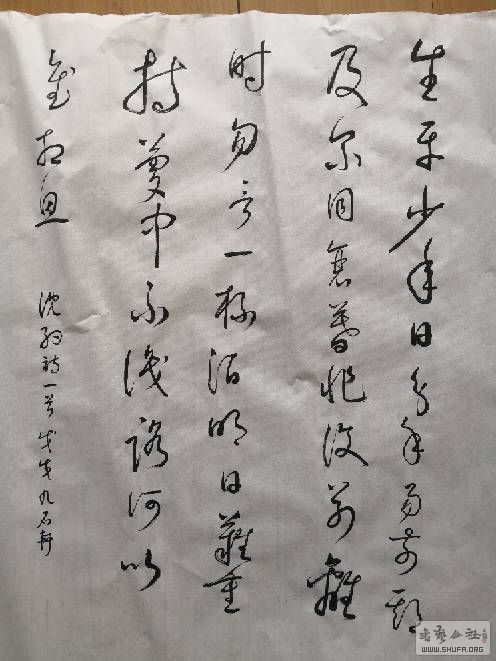 生平少年日分手易前期
及尔同衰暮非復别離
时勿言一樽酒明日難重
持夢中不識路何以
慰相思
沈約詩一首戊戌九石軒
書藝公社
WWW.SHUFA.ORG